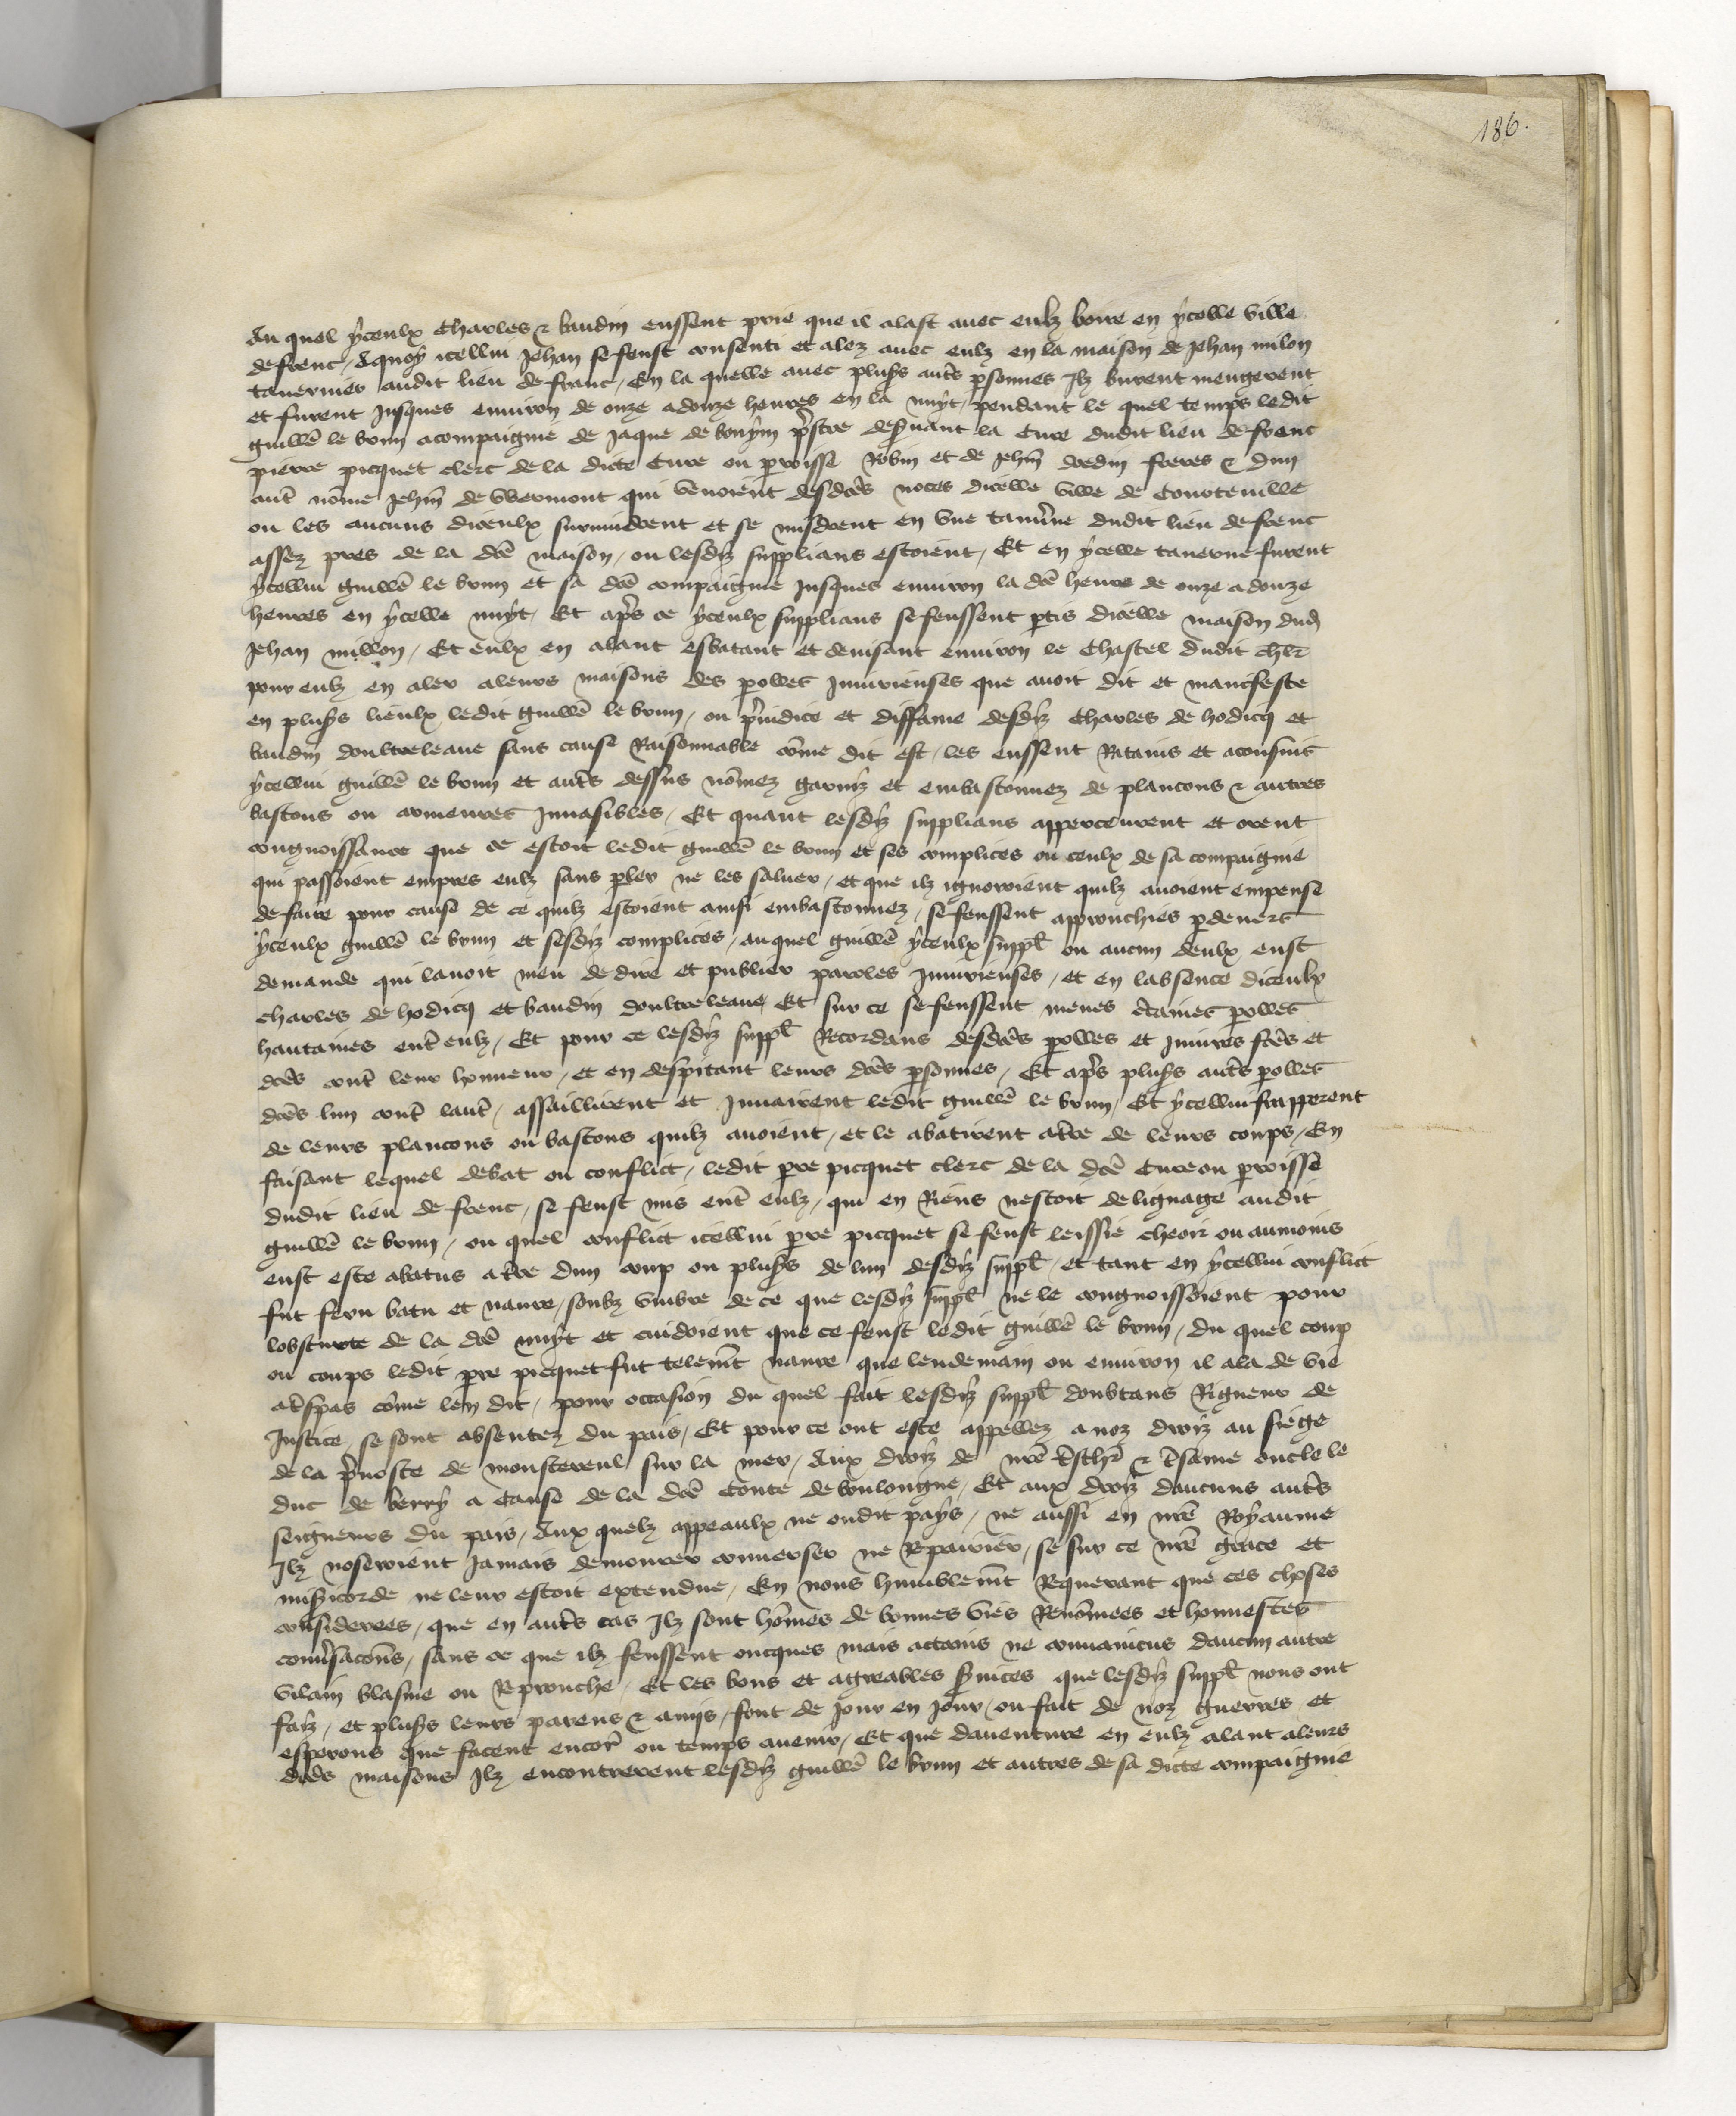 186.
Au quel yceulx Charles & baudin eussent prie que il alast avec eulz boire en ycelle ville
de frenc, A quoy icellui Jehan se feust consenti et alez avec eulz en la maison de Jehan milon
tavernier audit lieu de franc, En la quelle avec plus̃s aut̃s p̃sonnes Ilz burent mengerent
et furent Jusques environ de onze a douze heures en la nuyt, pendant le quel temps ledit
guill̃e le brun acompaignie de Jaque de bouyn p̃stre desẽvant la Cure dudit lieu de frenc
pierre picquet clerc de la dicte Cure ou p̃roisse Robin et de Jehñ dredin freres & dun
aut̃ nõme Jehñ de Wermont qui venoient desdc̃es noces dicelle ville de Couteville
ou les aucuns diceulx survindrent et se misdrent en une tav̾ne dudit lieu de frenc
assez pres de la dc̃e maison, ou lesdiz supplians estoient, Et en ycelle taverne furent
ycellui guill̃e le brun et sa dc̃e compaignie Jusques environ la dc̃e heure de onze a douze
heures en ycelle nuyt, Et ap̃s ce yceulx supplians se feussent p̃tis dicelle maison dud̃
Jehan millon, Et eulx en alant esbatant et devisant environ le Chastel dudit chl̃r
pour eulz en aler a leurs maisons des p̃olles Injurieuses que avoit dit et manifeste
en plus̃s lieulx ledit guill̃e le brun, ou p̃judice et diffame desdiz Charles de hodicq et
baudin doultreleaue sans cause Raisonnable cõme dit est, les eussent Ratains et aconsuis
ycellui guill̃e le brun et aut̃s dessus nõmez garniz et embastonnez de plancons & autres
bastons ou armeures Invasibles, Et quant lesdiz supplians appercurent et orent
congnoissance que ce estoit ledit guill̃e le brun et ses complices ou ceulx de sa compaignie
qui passoient empres eulz sans p̃ler ne les saluer, et que ilz ignoroient quilz avoient empense
de faire pour cause de ce quilz estoient ainsi embastonnez, se feussent approuchies p̃devers
yceulx guill̃e le brun et sesdiz complices, auquel guill̃e yceulx suppl̃ ou aucun deulx eust
demande qui lavoit meu de dire et publier paroles Injurieuses, et en labsence diceulx
Charles de hodicq et baudin doultreleaue, Et sur ce se feussent meues c̃taines p̃olles
hautaines ent̃ eulz, Et pour ce lesdiz suppl̃ Recordans desdc̃es p̃olles et Injures fc̃es et
dc̃es cont̃ leur honneur, et en despitant leurs dc̃es p̃sonnes, Et ap̃s plus̃s aut̃s p̃olles
dc̃es lun cont̃ laut̃, assaillirent et Invairent ledit guill̃e le brun, Et ycellui frapperent
de leurs plancons ou bastons quilz avoient, et le abatirent a t̃re de leurs coups, En
faisant lequel debat ou conflict, ledit p̃re picquet clerc de la dc̃e Cure ou p̃roisse
dudit lieu de frenc, se feust mis ent̃ eulz, qui en Riens nestoit de lignage audit
guill̃e le brun, ou quel conflict icellui p̃re picquet se feust leissie cheoir ou aumoins
eust este abatus a t̃re dun coup ou plus̃s de lun desdiz suppl̃, et tant en ycellui conflict
fut feru batu et navre, soubz umbre de ce que lesdiz suppl̃ ne le congnoissoient pour
lobscurte de la dc̃e nuyt et cuidoient que ce feust ledit guill̃e le brun, du quel coup
ou coups ledit p̃re picquet fut telemt̃ navre que lendemain ou environ il ala de vie
a t̃spas cõme len dit, pour occasion du quel fait lesdiz suppl̃ doubtans Rigueur de
Justice, se sont absentez du pais, Et pour ce ont este appellez a noz droiz au siege
de la p̃voste de monstereul sur la mer, Aux droiz de nr̃e t̃schr̃ & t̃same oncle le
duc de berry a Cause de la dc̃e Conte de boulongne, Et aux droiz daucuns aut̃s
seigneurs du pais, Aux quelz appeaulx ne oudit pays, ne aussi en nr̃e Royaume
Ilz noseroient Jamais demourer converser ne Repairier, se sur ce nr̃e grace et
mis̃icorde ne leur estoit extendue, En nous humblemt̃ Requerant que ces choses
considerees, que en aut̃s cas Ilz sont hõmes de bonnes vies Renõmees et honnestes
conv̾sacõns, sans ce que ilz feussent oncques mais attains ne convaincus daucun autre
vilain blasme ou Reprouche, Et les bons et agreables s̃vices que lesdiz suppl̃ nous ont
faiz, et plus̃s leurs parens & amis, font de Jour en Jour, ou fait de noz guerres et
esperons que facent encor̃ ou temps avenir, Et que daventure en eulz alant a leurs
dc̃es maisons Ilz encontrerent lesdiz guill̃e le brun et autres de sa dicte compaignie